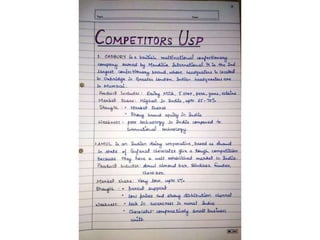 COMPETITORS USP
1. CADBURY is a british multinational confectionery
company owned by Mondelez International It is the 2nd
largest confectionery brand, whose headquarter is located
in Uxbridge in Greater London. Indian headquarters are
in Mumbai.
Product Includes: Dairy Milk, 5 star, perk, gems, eclairs
Market Share: Highest in India, upto 65-70%
Strength - Market Share
• Strong brand equity in India
Weakness - poor technology in India compared to
international technology.
2. AMUL is an Indian dairy cooperative, based at Anand
in state of Gujarat chocolates give a tough competition
because they have a well established market in India
Product Includes: Amul almond bar,
Market Share: Very low, upto
Strength - Brand support
• Low prices and strong distribution channel
Weakness - lack in awareness in rural India
• Chocolate comparatively small business
with